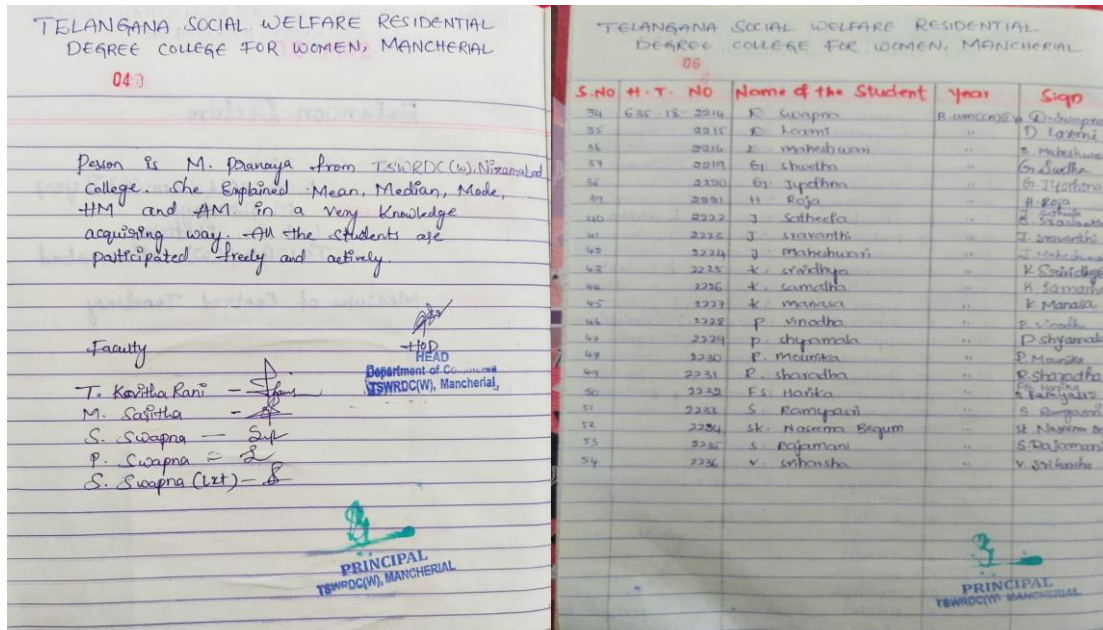 TELANGANA SOCIAL WELFARE RESIDENTIAL
DEGREE COLLEGE FOR WOMEN, MANCHERIAL
04
Person is M. Pranaya from TSWRDC(W), Nizamabad
College. She Explained Mean, Median, Mode,
HM and AM in a very Knowledge
acquiring way. All the Students are
participated freely and actively.
Faculty
HOD
HEAD
Department of
TSWRDC(W), Mancherial,
T. Kavitha Rani -
M. Saritha -
S. Swapna -
P. Swapna =
S. Swapna (Lxt) -
PRINCIPAL
TSWRDC(W), MANCHERIAL
TELANGANA SOCIAL WELFARE RESIDENTIAL
DEGREE COLLEGE FOR WOMEN, MANCHERIAL
06
S.No H.T. No Name of the Student Year Sign
34 635-18-2214 D. Swapna D. Swapna
35 2215 D. laxmi " D. Laxmi
36 2216 maheshwari "
37 2219 G. shwetha "
38 2220 G. Jyothna " G. Jyothsna
39 2221 H. Roja " H. Roja
40 2222 J. "
41 2223 J. sravanthi " J. sravanthi
42 2224 J. maheshwari "
43 2225 K. srividhya " K Srividhya
44 2226 K. samatha " K. Samatha
45 2227 K. manasa " K Manasa
46 2228 P. vinodha "
47 2229 P. shyamala " P shyamala
48 2230 P. mounika " P. Mounika
49 2231 R. sharadha " R. Sharadha
50 2232 Fs. Harika " Fs. Harika
51 2233 S. "
52 2234 Sk. Naseema Begum "
53 2235 S. Rajamani " S. Rajamani
54 2236 V. sriharsha " V. Sriharsha
PRINCIPAL
TSWRDC(W) MANCHERIAL